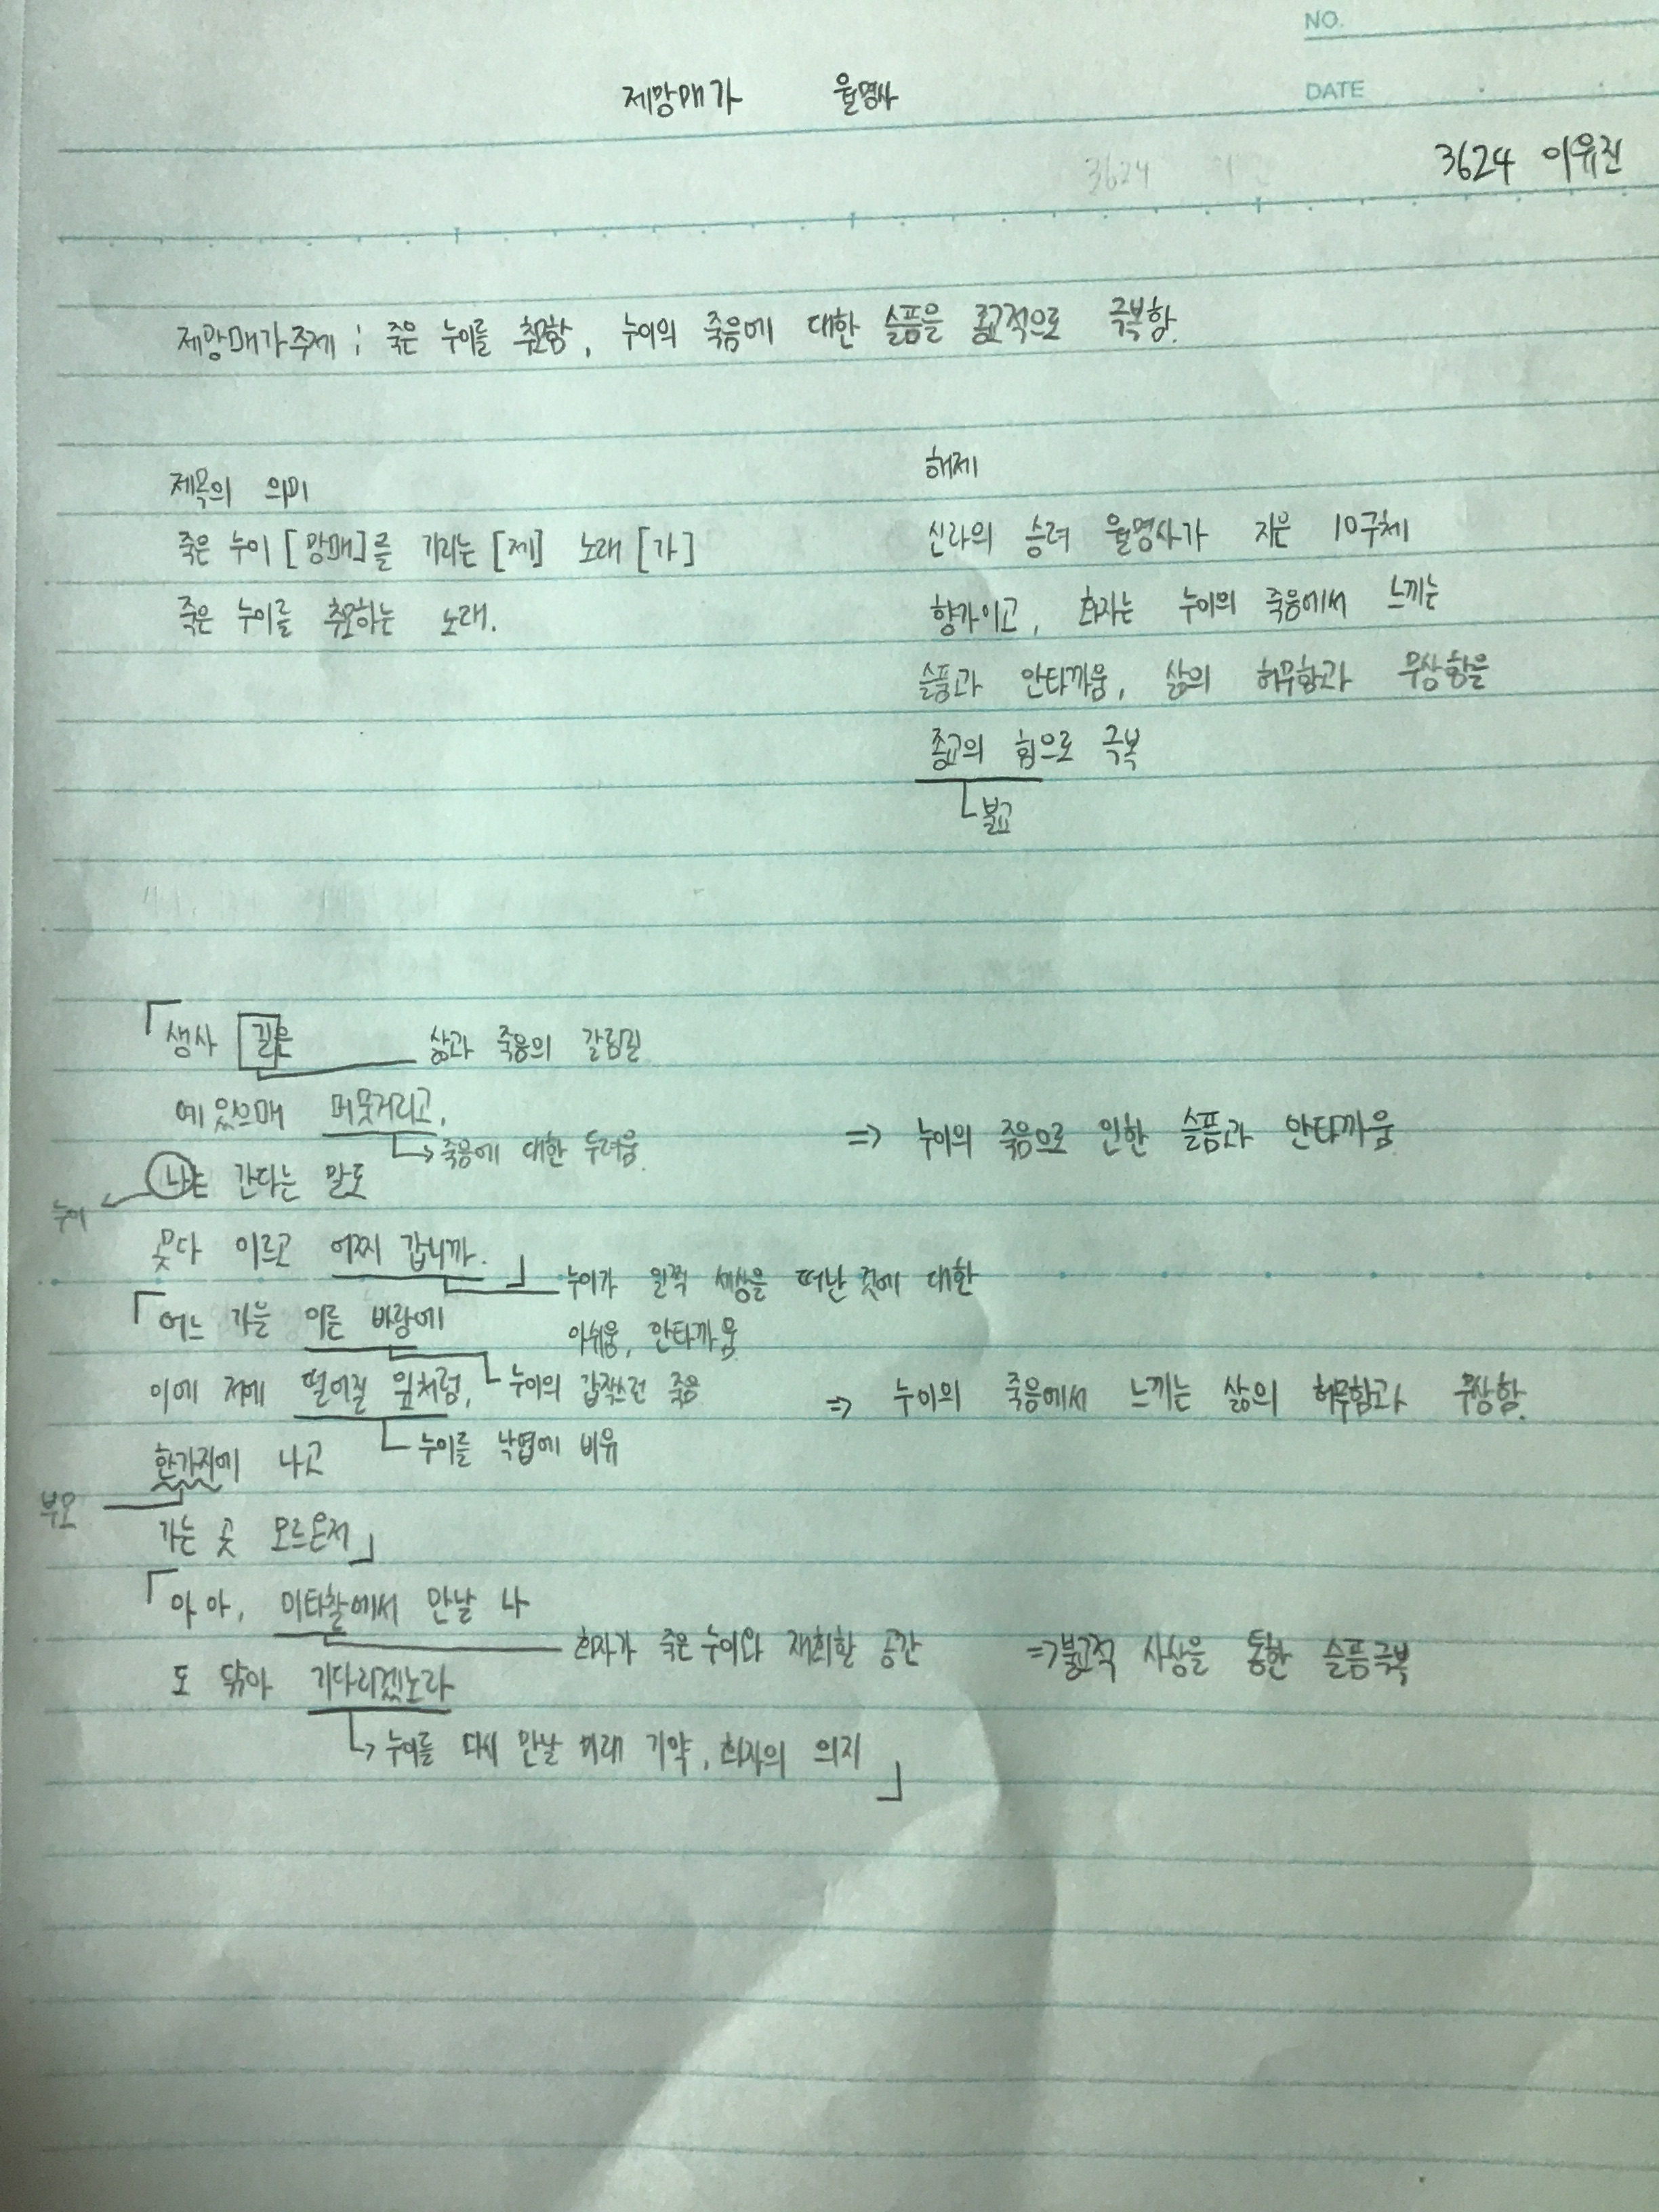 NO.
제망매가 월명사
DATE
3624
3624 이유진
제망매가 주제 : 죽은 누이를 추모함, 누이의 죽음에 대한 슬픔을 종교적으로 극복함.
제목의 의미
죽은 누이 [망매]를 기리는 [제] 노래 [가]
죽은 누이를 추모하는 노래.
해제
신라의 승려 월명사가 지은 10구체
향가이고, 화자는 누이의 죽음에서 느끼는
슬픔과 안타까움, 삶의 허무함과 무상함을
종교의 힘으로 극복
불교
「생사 길은
삶과 죽음의 갈림길
에 있으매 머뭇거리고,
→죽음에 대한 두려움.
⇒ 누이의 죽음으로 인한 슬픔과 안타까움
나는 간다는 말도
누이
못다 이르고 어찌 갑니까.」
누이가 일찍 세상을 떠난 것에 대한
아쉬움, 안타까움
「어느 가을 이른 바람에
누이의 갑작스런 죽음
이에 저에 떨어질 잎처럼,
누이를 낙엽에 비유
⇒ 누이의 죽음에서 느끼는 삶의 허무함과 무상함.
한가지에 나고
부모
가는 곳 모르온저」
「아아, 미타찰에서 만날 나
화자가 죽은 누이와 재회할 공간
⇒불교적 사상을 통한 슬픔극복
도 닦아 기다리겠노라
→누이를 다시 만날 미래 기약, 화자의 의지」